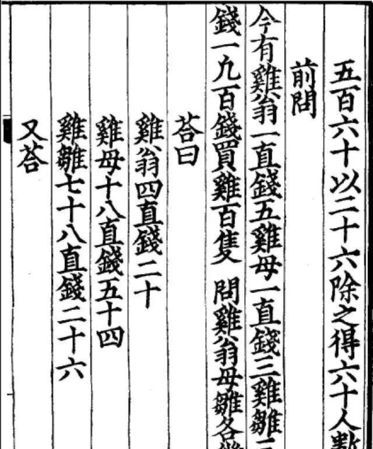 五百六十以二十六除之得六十人數
前問
今有雞翁一直錢五雞母一直錢三雞雛
錢一九百錢買雞百隻 問雞翁母雛各
荅曰
雞翁四直錢二十
雞母十八直錢五十四
雞雛七十八直錢二十六
又荅